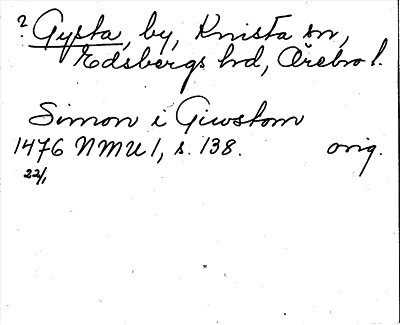 ? Gysta, by, Knista sn,
Edsbergs hd, Örebro l.
Simon i Giwstom
1476 NMU 1, s. 138. orig.
22/1